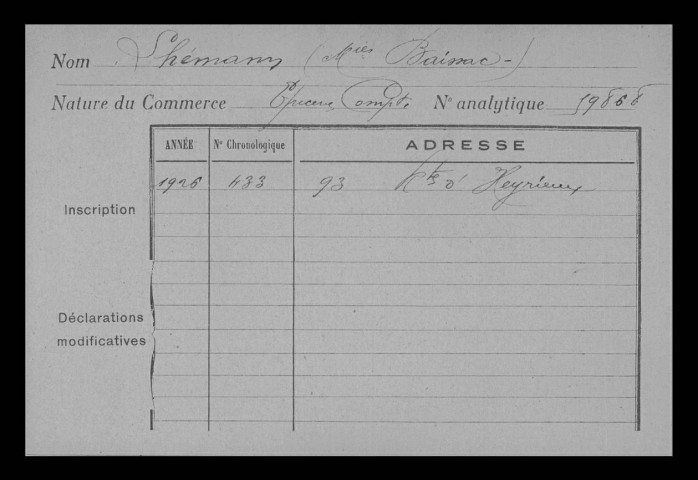 Nom Lhémann (Mies Baissac-)
Nature du Commerce Epicerie Compt. N° analytique 19868
ANNÉE N° Chronologique ADRESSE
Inscription 1926 433 93 Rte d' Heyrieux
Déclarations
modificatives